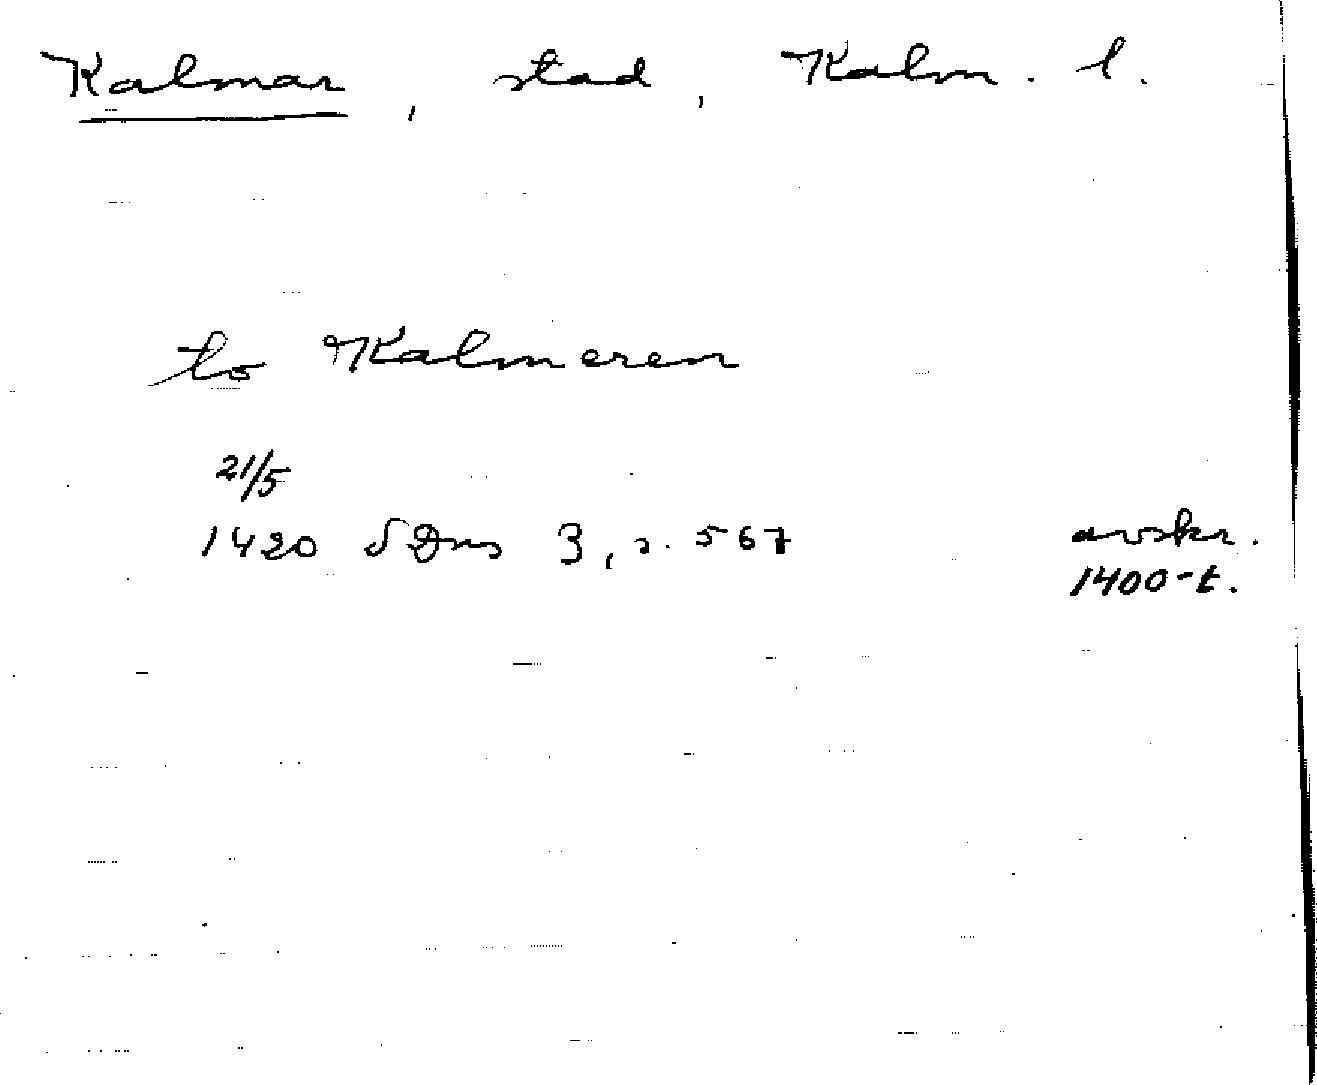 Kalmar, stad, Kalm. l.
to Kalmeren
21/5
1420 SDns 3, s. 567 avskr.
1400-t.